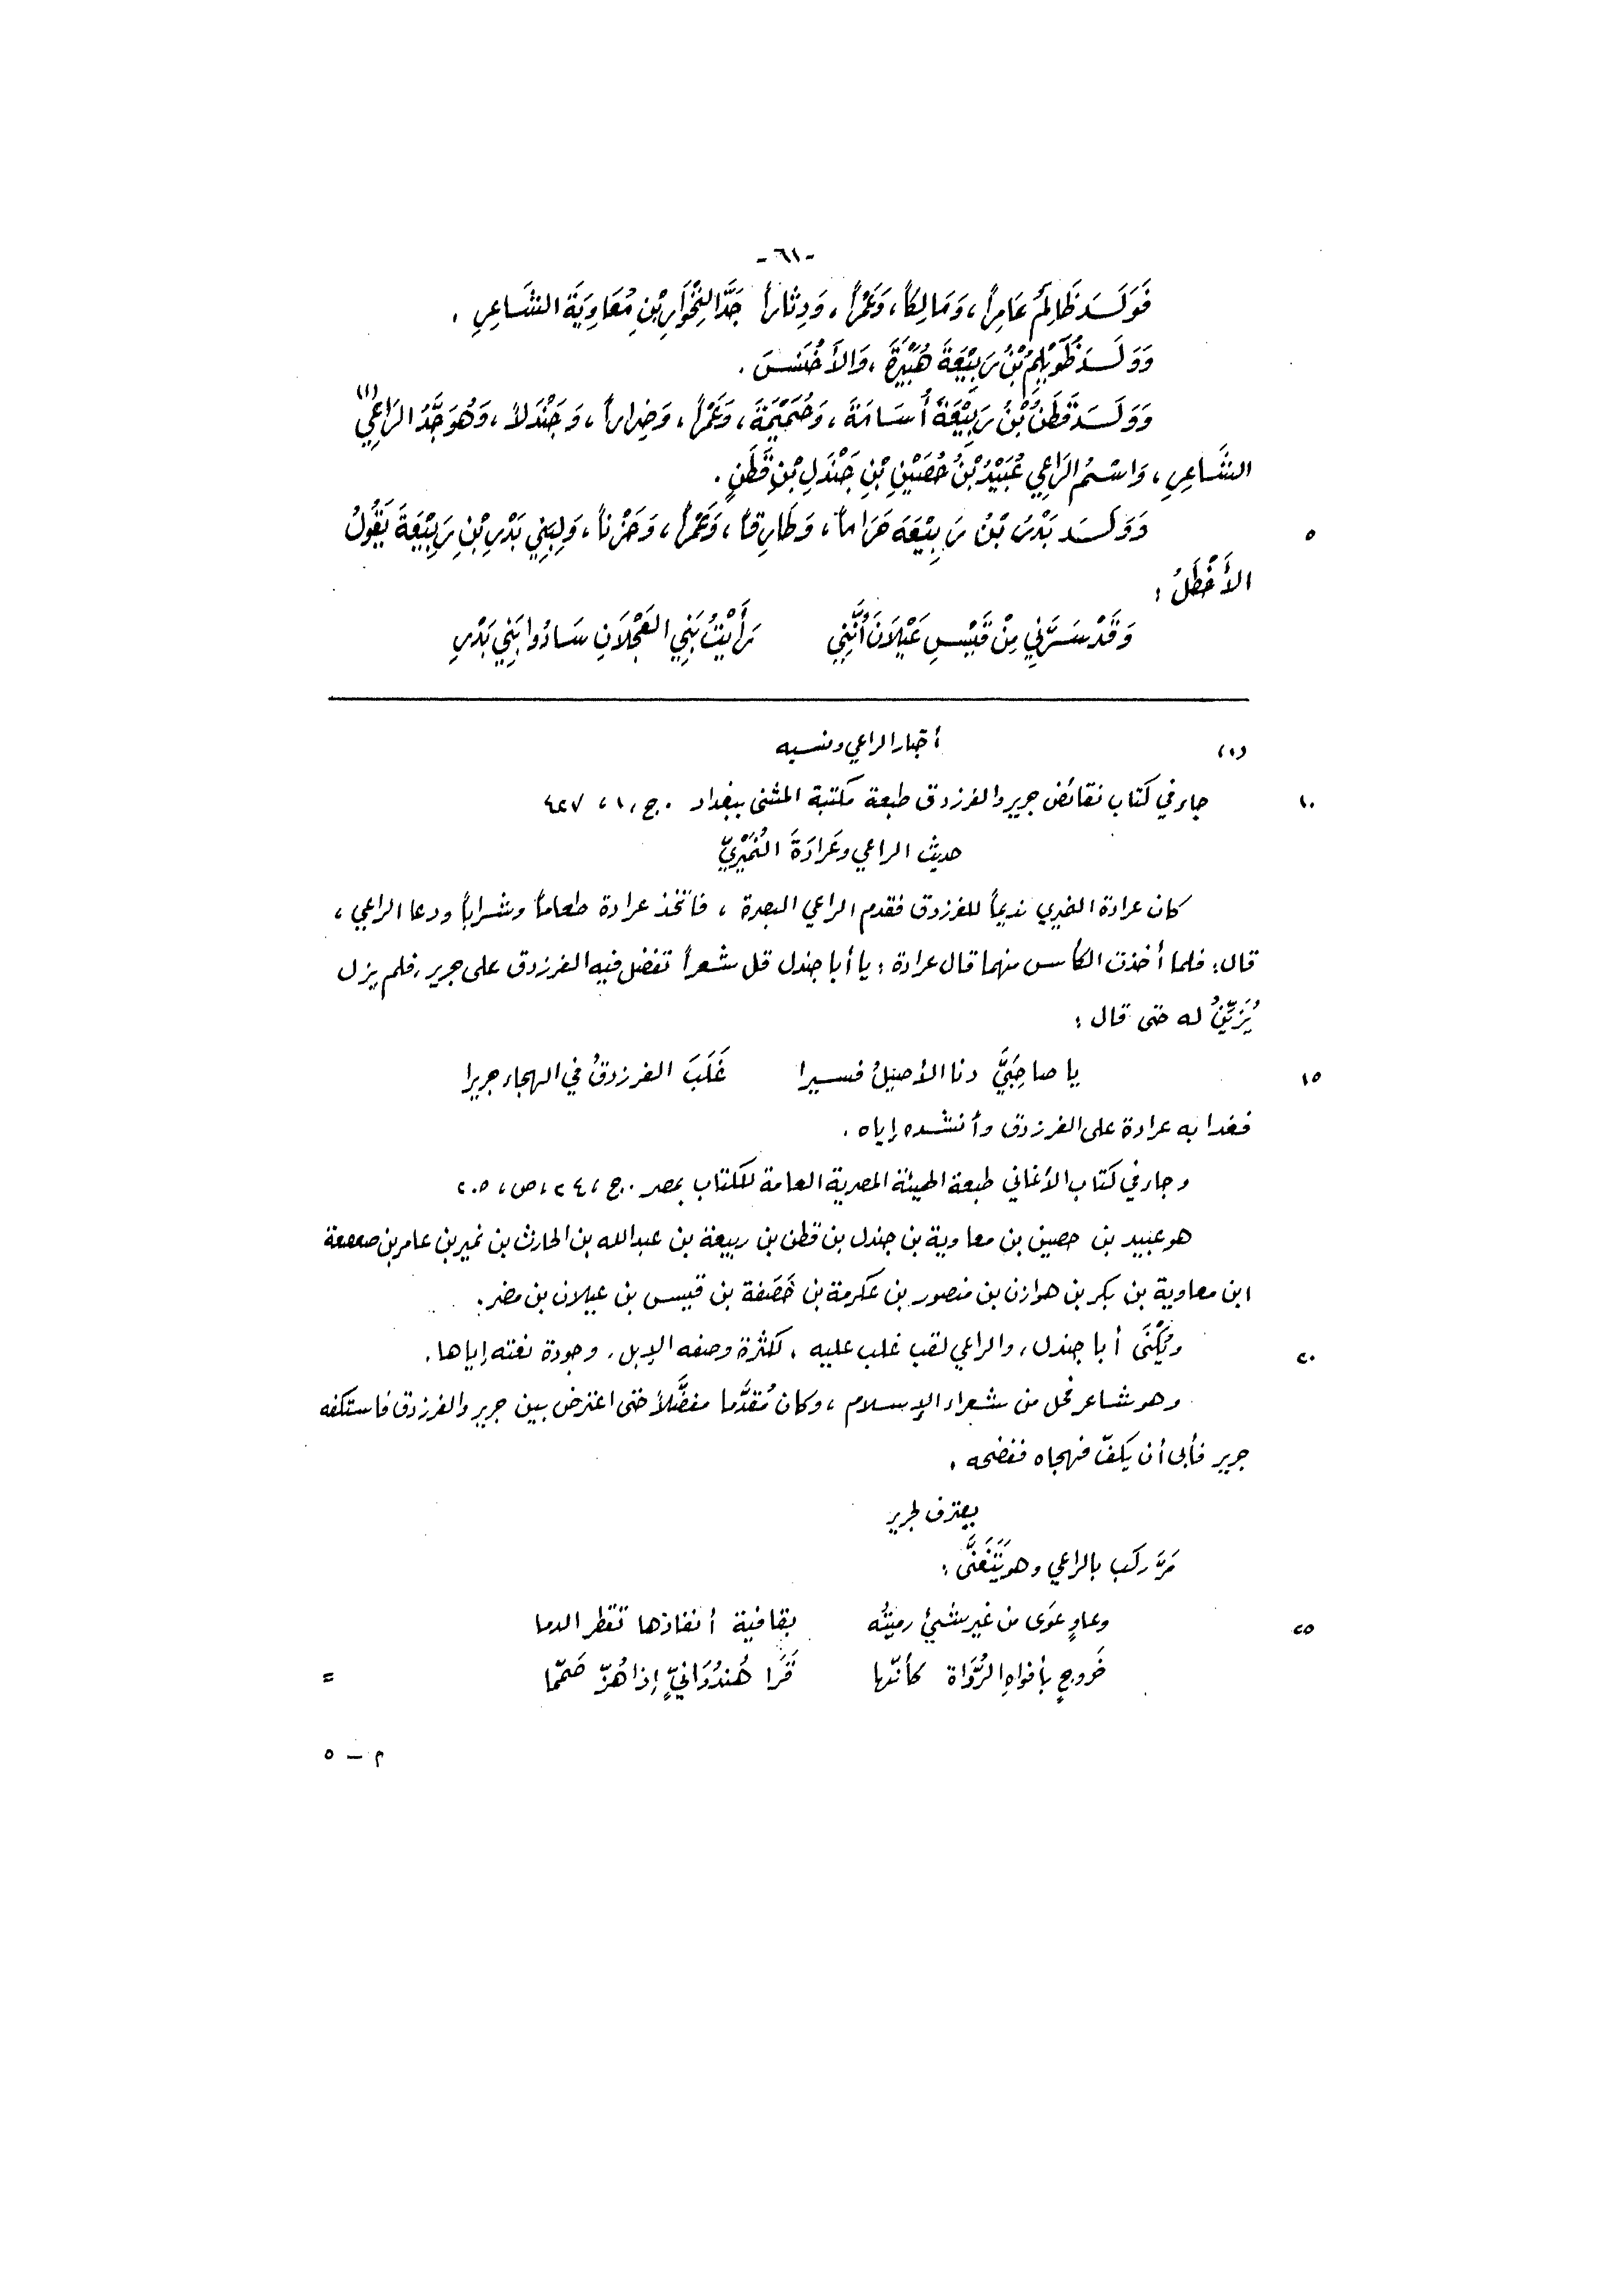 -٦١-
فَوَلَسَدَ ظَالِمُ عَامِراً، وَمَالِكاً، وَعَمْراً، وَدِثَاراً جَدَّ النِّخْوَارِ بْنِ مُعَاوِيَةَ الشَّاعِرِ.
وَوَلَسَدَ ظُوَيْلِمُ بْنُ رَبِيْعَةَ هُبَيْرَةَ، وَالأَخْنَسَ.
وَوَلَسَدَ قَطَنُ بْنُ رَبِيْعَةَ أُسَامَةَ، وَحُمَيْمَةَ، وَعَمْراً، وَضِرَاراً، وَجَنْدَلاً، وَهُوَ جَدُّ الرَّاعِي (١)
الشَّاعِرِ، وَاسْمُ الرَّاعِي عُبَيْدُ بْنُ حُصَيْنِ بْنِ جَنْدَلِ بْنِ قَطَنٍ.
٥ وَوَلَسَدَ بَدْرُ بْنُ رَبِيْعَةَ حَرَاماً، وَطَارِقاً، وَعَمْراً، وَحَزْناً، وَلِبَنِي بَدْرِ بْنِ رَبِيْعَةَ يَقُولُ
الأَخْطَلُ:
وَقَدْ سَرَّنِي مِنْ قَيْسِ عَيْلَانَ أَنَّنِي رَأَيْتُ بَنِي العَجْلَانِ سَادُوا بَنِي بَدْرِ
(١) أخبار الراعي ونسبه
١٠ جاء في كتاب نقائض جرير والفرزدق طبعة مكتبة المثنى ببغداد. ج، ١، ٤٢٧
حديث الراعي وعَرَادَةَ النُّمَيْرِيّ
كان عرادة النميري نديماً للفرزدق فقدم الراعي البصرة، فاتّخذ عرادة طعاماً وشراباً ودعا الراعي،
قال: فلما أخذت الكأس منهما قال عرادة: يا أبا جندل قل شعراً تفضل فيه الفرزدق على جرير، فلم يزل
يُزَيِّنُ له حتى قال:
١٥ يا صاحِبَيَّ دنا الأصيلُ فسيرا غَلَبَ الفرزدقُ في الهجاء جريرا
فغدا به عرادة على الفرزدق وأنشده إياه.
وجاء في كتاب الأغاني طبعة الهيئة المصرية العامة للكتاب بمصر. ج، ٢٤، ص، ٢٠٥
هو عبيد بن حصين بن معاوية بن جندل بن قطن بن ربيعة بن عبدالله بن الحارث بن نمير بن عامر بن صعصعة
ابن معاوية بن بكر بن هوازن بن منصور بن عكرمة بن خَصَفة بن قيس بن عيلان بن مضر.
٢٠ ويُكْنَى أبا جندل، والراعي لقب غلب عليه، لكثرة وصفه الإبل، وجودة نعته إياها.
وهو شاعر فحل من شعراء الإسلام، وكان مُقدَّما مفضَّلاً حتى اعترض بين جرير والفرزدق فاستكفه
جرير فأبى أن يكفّ فهجاه ففضحه.
يعترف لجرير
مَرَّ ركب بالراعي وهو يَتَغَنَّى:
٢٥ وعاوٍ عوَى من غير شيئ رميتُه بقافية أنفاذها تقطر الدما
خَروجٍ بأفواهِ الرُّوَاة كأنّها قَرَا هُندُوَانيٍّ إذا هُزّ صَمّما =
م - ٥